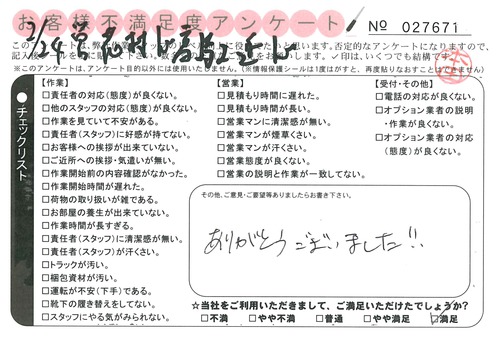 お客様不満足度アンケート
№ 027671
3/24
※このアンケートは、アンケート目的以外には使用いたしません。(※情報保護シールは1度はがすと、再度貼りなおすことはできません)
チェックリスト
【作業】
□責任者の対応(態度)が良くない。
□他のスタッフの対応(態度)が良くない。
□作業を見ていて不安がある。
□責任者(スタッフ)に好感が持てない。
□お客様への挨拶が出来ていない。
□ご近所への挨拶・気遣いが無い。
□作業開始前の内容確認がなかった。
□作業開始時間が遅れた。
□荷物の取り扱いが雑である。
□お部屋の養生が出来ていない。
□作業時間が長すぎる。
□責任者(スタッフ)に清潔感が無い。
□責任者(スタッフ)が汗くさい。
□トラックが汚い。
□梱包資材が汚い。
□運転が不安(下手)である。
□靴下の履き替えをしてない。
□スタッフにやる気がみられない。
【営業】
□見積もり時間に遅れた。
□見積もり時間が長い。
□営業マンに清潔感が無い。
□営業マンが煙草くさい。
□営業マンが汗くさい。
□営業態度が良くない。
□営業の説明と作業が一致してない。
【受付・その他】
□電話の対応が良くない。
□オプション業者の説明・作業が良くない。
□オプション業者の対応(態度)が良くない。
その他、ご意見・ご要望等ありましたらお書き下さい。
ありがとうございました!!
☆当社をご利用いただきまして、ご満足いただけたでしょうか?
□不満 □やや不満 □普通 □やや満足 ☑満足